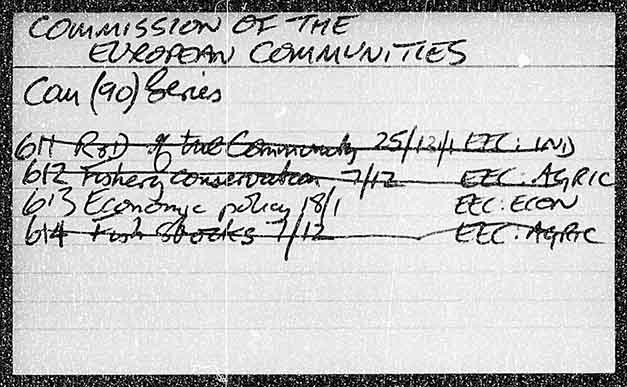 COMMISSION OF THE
EUROPEAN COMMUNITIES
Com (90) Series
611 R&D of the Community 25/12/1 EEC: IND
612 Fishery conservation 7/12 EEC: AGRIC
613 Economic policy 18/1 EEC: ECON
614 Fish Stocks 7/12 EEC: AGRIC